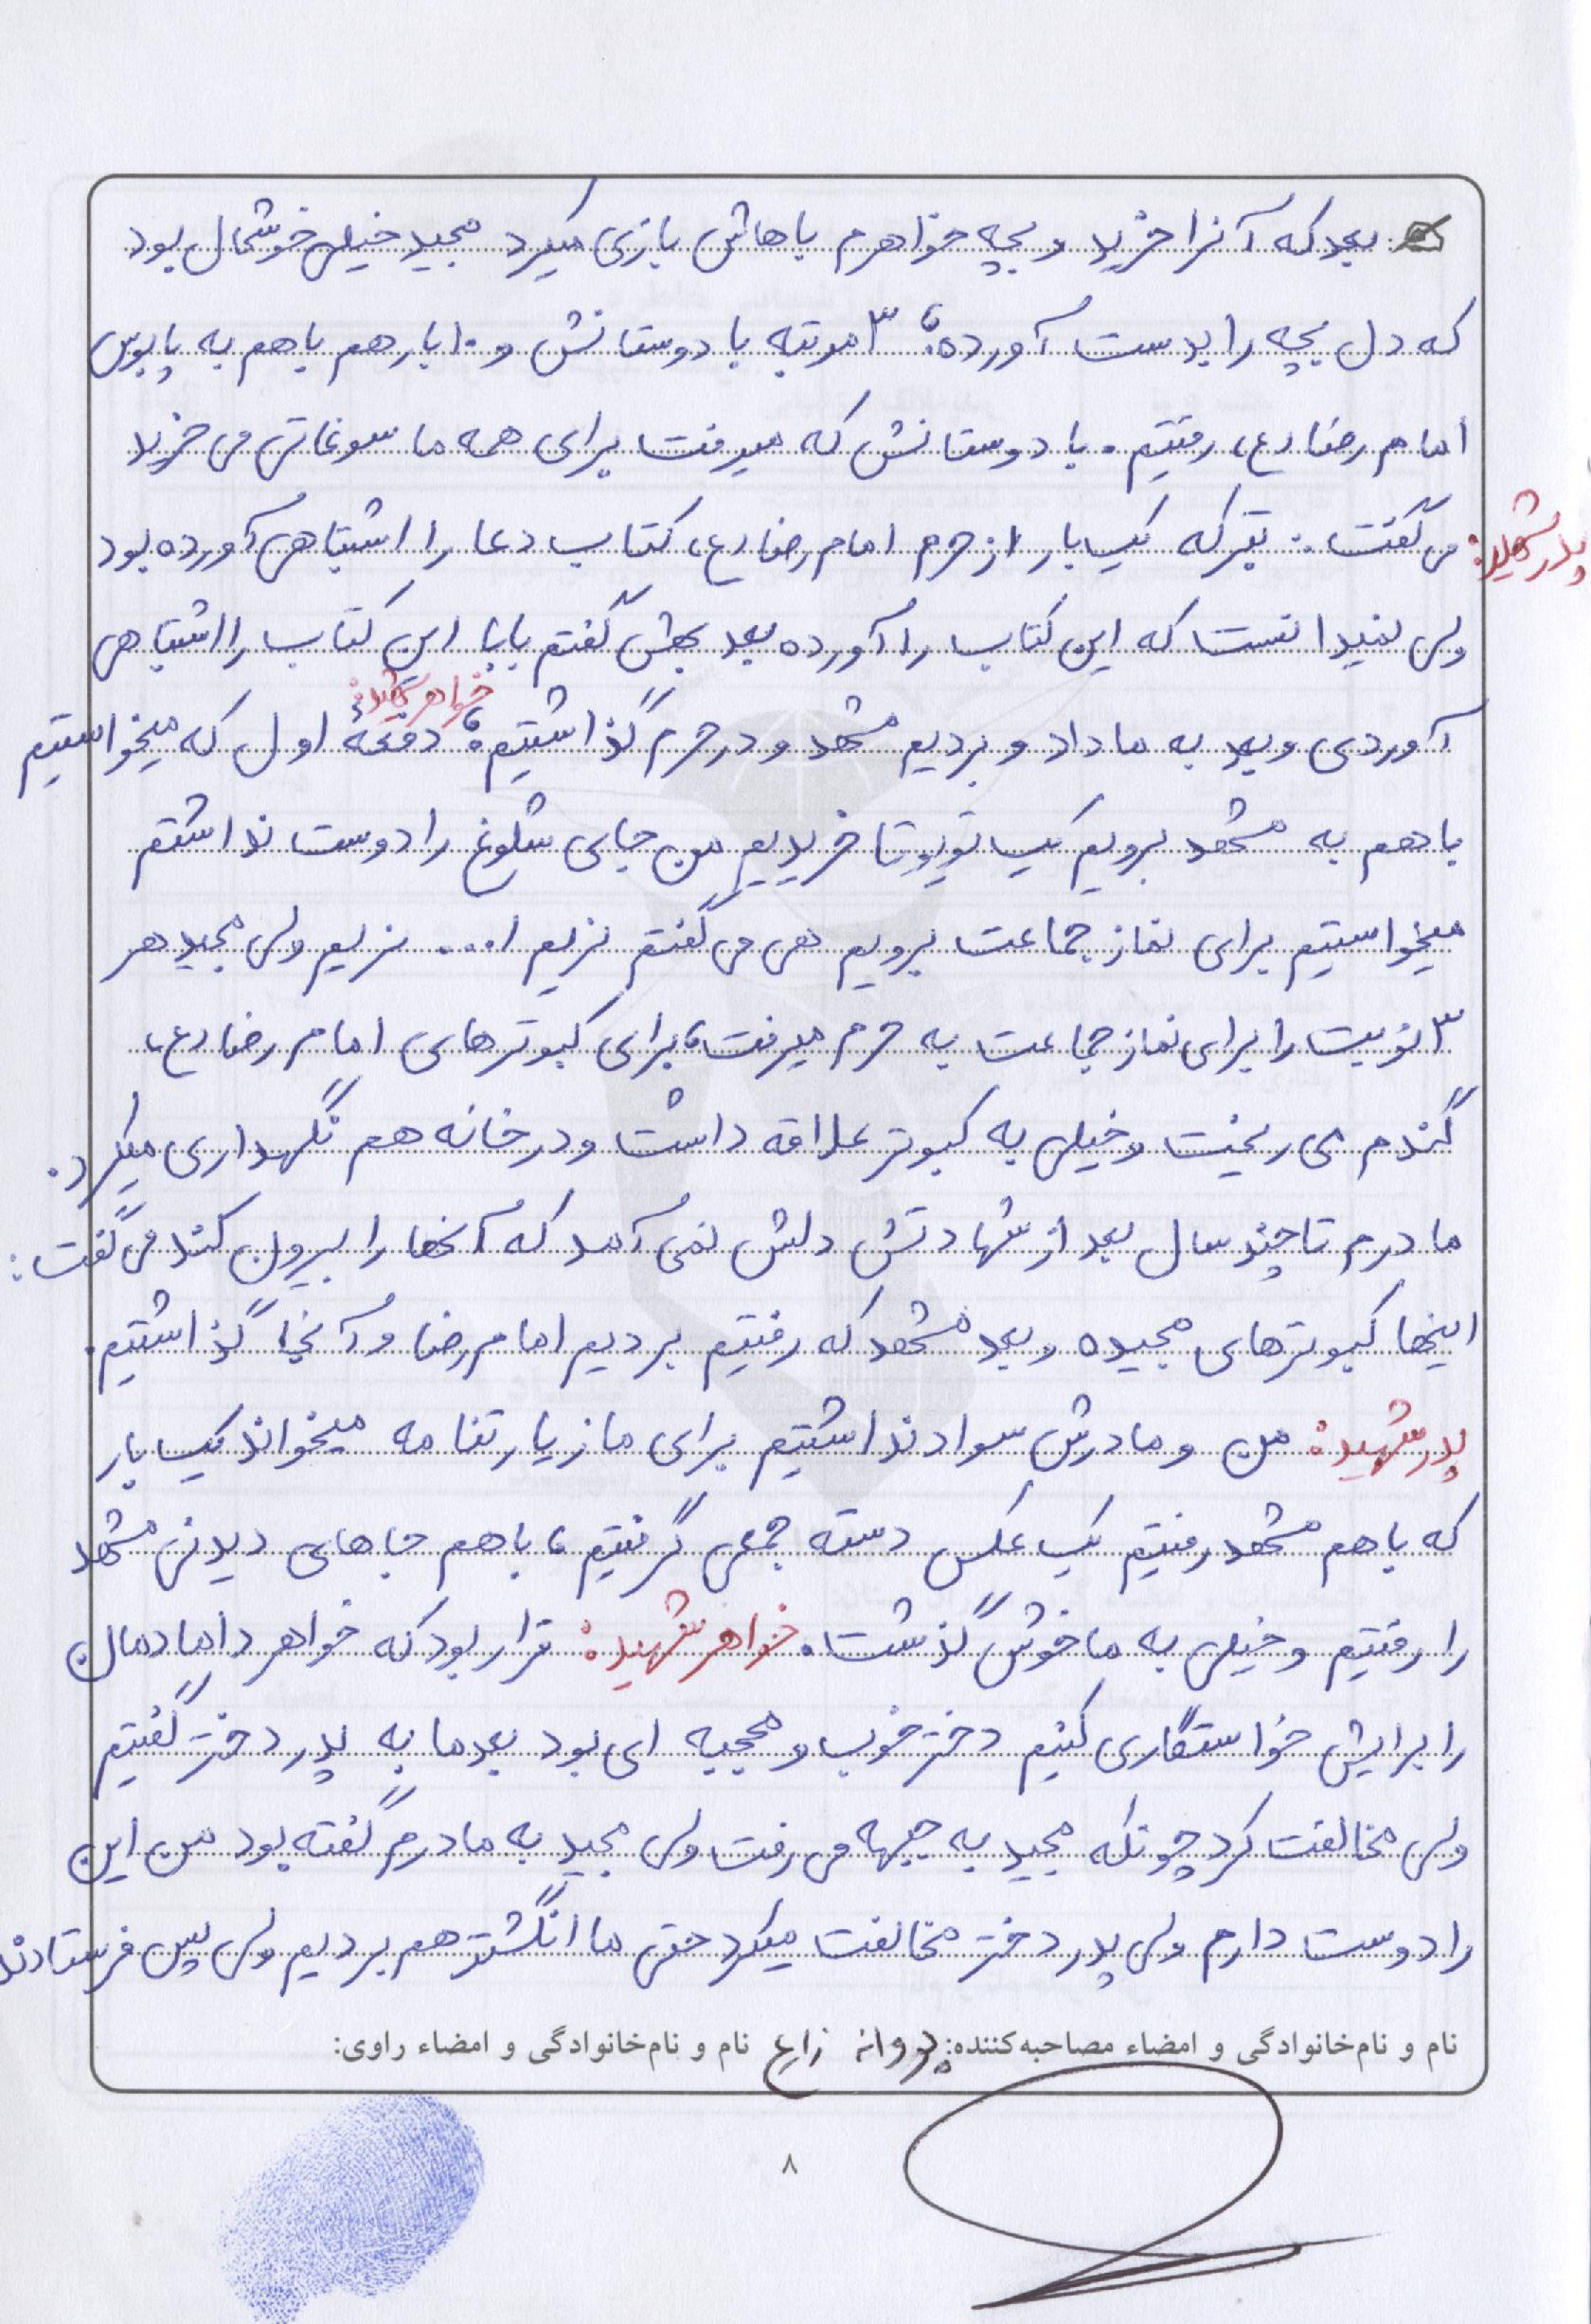 بعد که آنرا خرید و بچه خواهرم باهاش بازی میکرد مجید خیلی خوشحال بود
که دل بچه را بدست آورده؛ ۳ مرتبه با دوستانش و ۱۰ بار هم باهم به پابوس
امام رضا (ع) رفتیم. با دوستانش که میرفت برای همه ما سوغاتی می خرید
پدر شهید: می گفت: تبرکه یک بار از حرم امام رضا (ع) کتاب دعا را اشتباهی آورده بود
ولی نمیدانست که این کتاب را آورده بعد بهش گفتم بابا این کتاب را اشتباهی
آوردی و بعد به ما داد و بردیم مشهد و در حرم گذاشتیم؛ خواهر شهید: دفعهٔ اول که میخواستیم
باهم به مشهد برویم یک تویوتا خریدیم من جای شلوغ را دوست نداشتم
میخواستیم برای نماز جماعت برویم هی می گفتم نریم ا... نریم ولی مجید هر
۳ نوبت را برای نماز جماعت به حرم میرفت، برای کبوترهای امام رضا (ع)
گندم می ریخت و خیلی به کبوتر علاقه داشت و در خانه هم نگهداری میکرد.
مادرم تا چند سال بعد از شهادتش دلش نمی آمد که آنها را بیرون کند می گفت:
اینها کبوترهای مجیده و بعد مشهد که رفتیم بردیم امام رضا و آنجا گذاشتیم.
پدر شهید: من و مادرش سواد نداشتیم برای ما زیارتنامه میخواند یک بار
که باهم مشهد رفتیم یک عکس دسته جمعی گرفتیم، باهم جاهای دیدنی مشهد
را رفتیم و خیلی به ما خوش گذشت. خواهر شهید: قرار بود که خواهر دامادمان
را برایش خواستگاری کنیم دختر خوب و محجبه ای بود بعد ما به پدر دختر گفتیم
ولی مخالفت کرد چونکه مجید به جبهه می رفت ولی مجید به مادرم گفته بود من این
را دوست دارم ولی پدر دختر مخالفت میکرد حتی ما انگشتر هم بردیم ولی پس فرستادند
نام و نام‌خانوادگی و امضاء مصاحبه‌کننده: پروانه زارع نام و نام‌خانوادگی و امضاء راوی:
۸